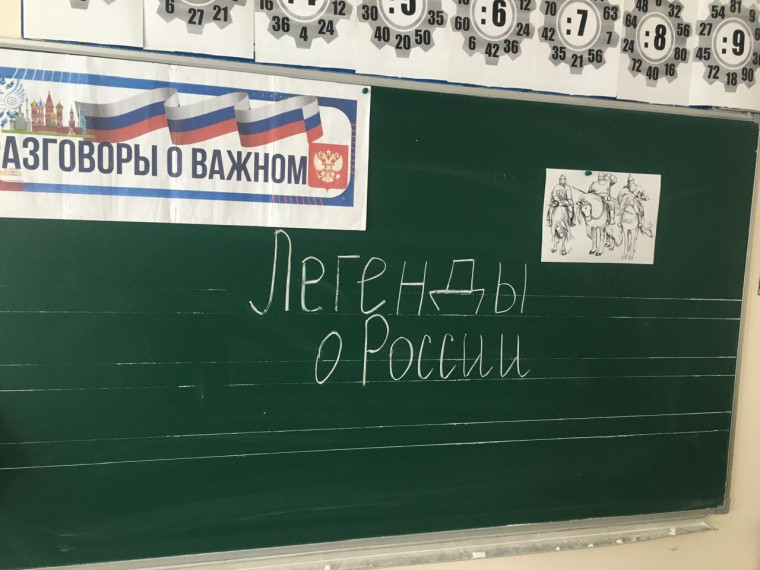 6 27 21
36 4 24
30 :5 35
10 40 20 50
60 :6
24 6 42 36
42 :7 63
35 21 56
64 48 32 56
24 :8 80
72 40 16
54 81 9
27 :9
45 72 18 90
РАЗГОВОРЫ О ВАЖНОМ
Легенды
о России